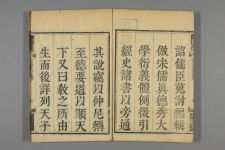 諸儒臣蒐討編輯
倣宋儒真德秀大
學衍義體例徵引
經史諸書以旁通
其說竊以仲尼稱
至德要道以順天
下又曰教之所由
生而後詳列天子